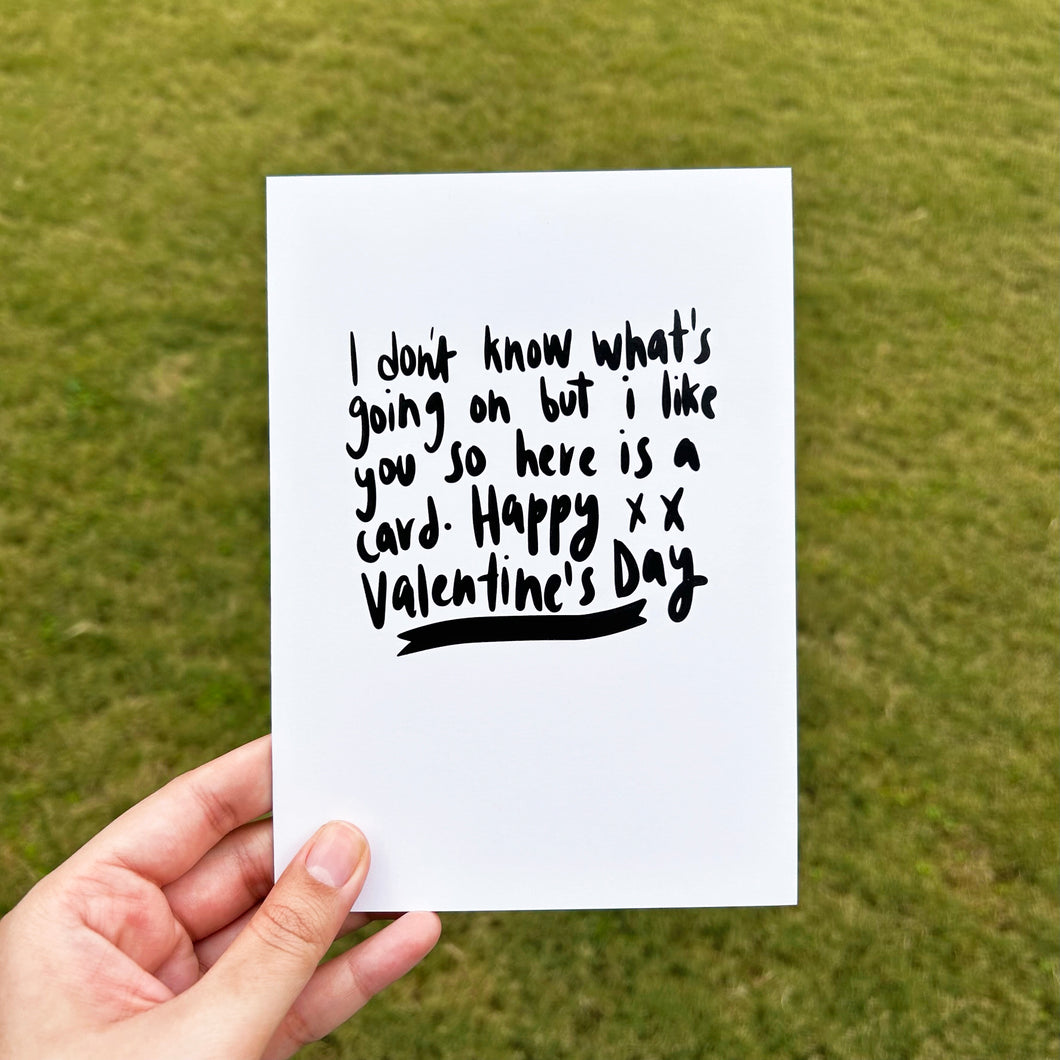 I don't know what's
going on but i like
you so here is a
card. Happy xx
Valentine's Day